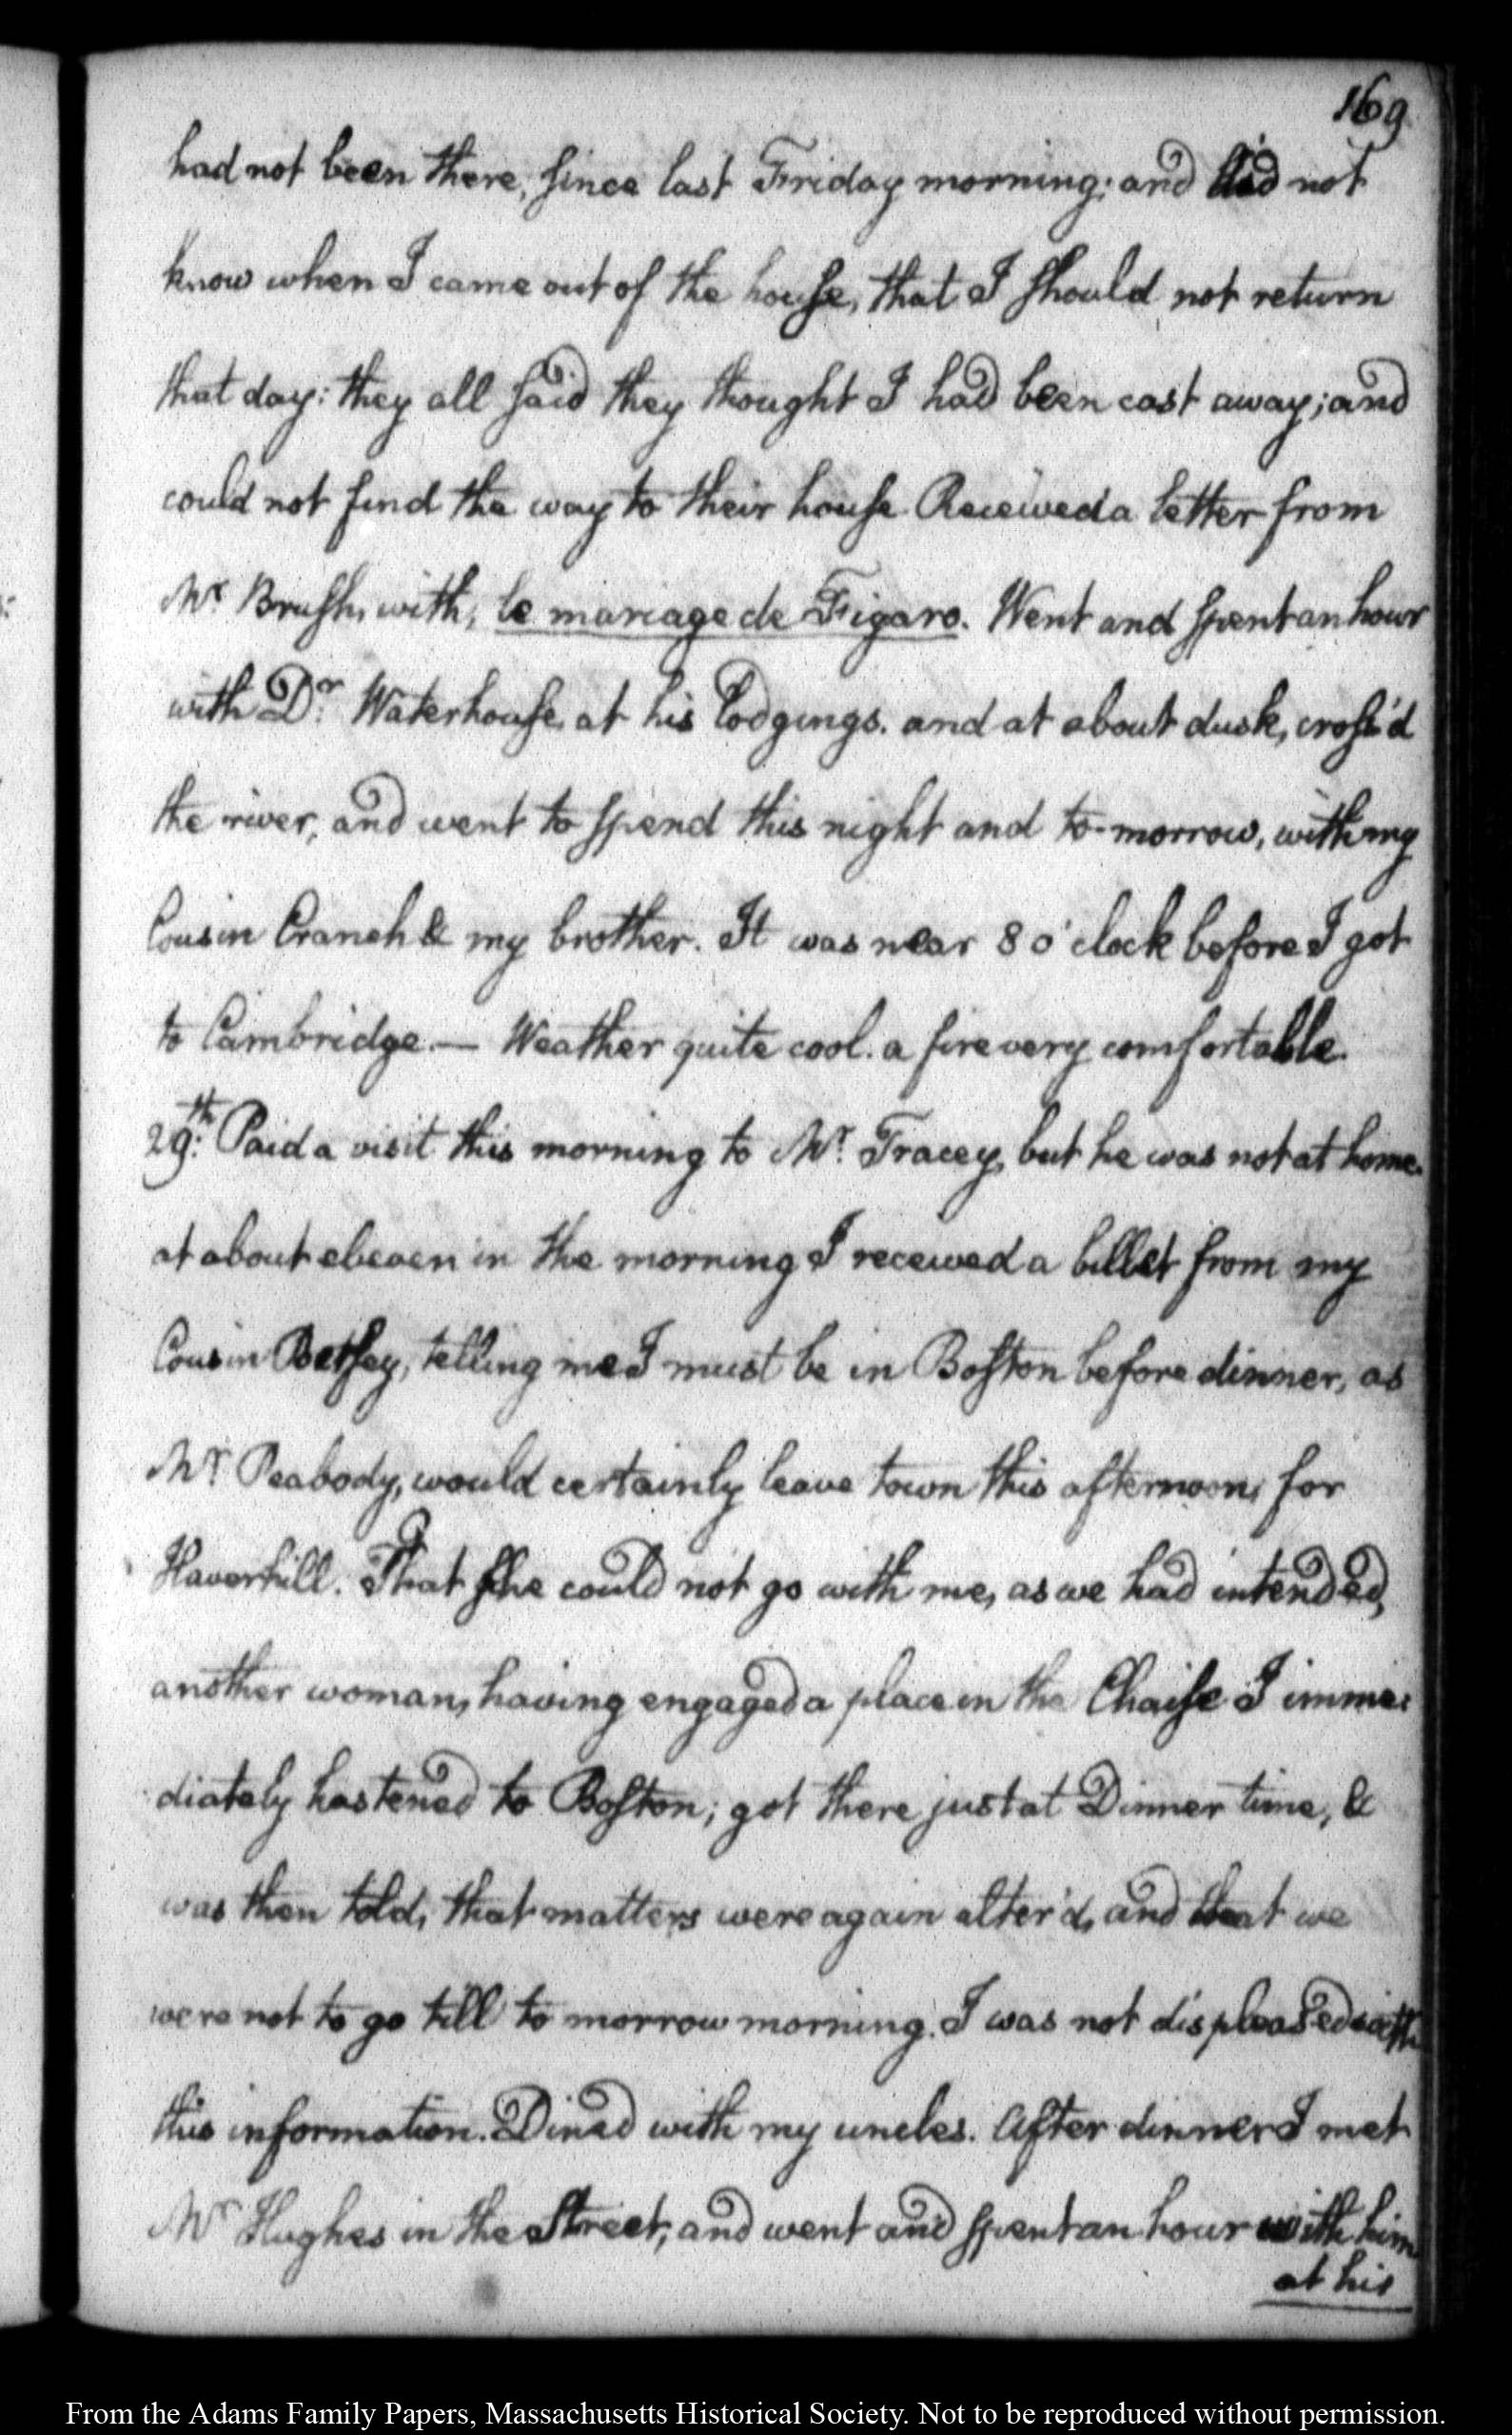 169
had not been there, since last Friday morning; and did not
know when I came out of the house, that I should not return
that day: they all said they thought I had been cast away; and
could not find the way to their house. Received a letter from
Mr. Brush, with, le mariage de Figaro. Went and spent an hour
with Dr. Waterhouse, at his lodgings. and at about dusk, cross'd
the river, and went to spend this night and to-morrow, with my
Cousin Cranch & my brother. It was near 8 o'clock before I got
to Cambridge.— Weather quite cool. a fire very comfortable.
29th: Paid a visit this morning to Mr. Tracey, but he was not at home.
at about eleven in the morning I received a billet from my
Cousin Betsey, telling me I must be in Boston before dinner, as
Mr Peabody, would certainly leave town this afternoon, for
Haverhill. That she could not go with me, as we had intended,
another woman, having engaged a place in the Chaise. I imme:
diately hastened to Boston; got there just at Dinner time, &
was then told, that matters were again alter'd, and that we
were not to go till to morrow morning. I was not displeased with
this information. Dined with my uncles. After dinner I met
Mr Hughes in the Street, and went and spent an hour with him
at his
From the Adams Family Papers, Massachusetts Historical Society. Not to be reproduced without permission.